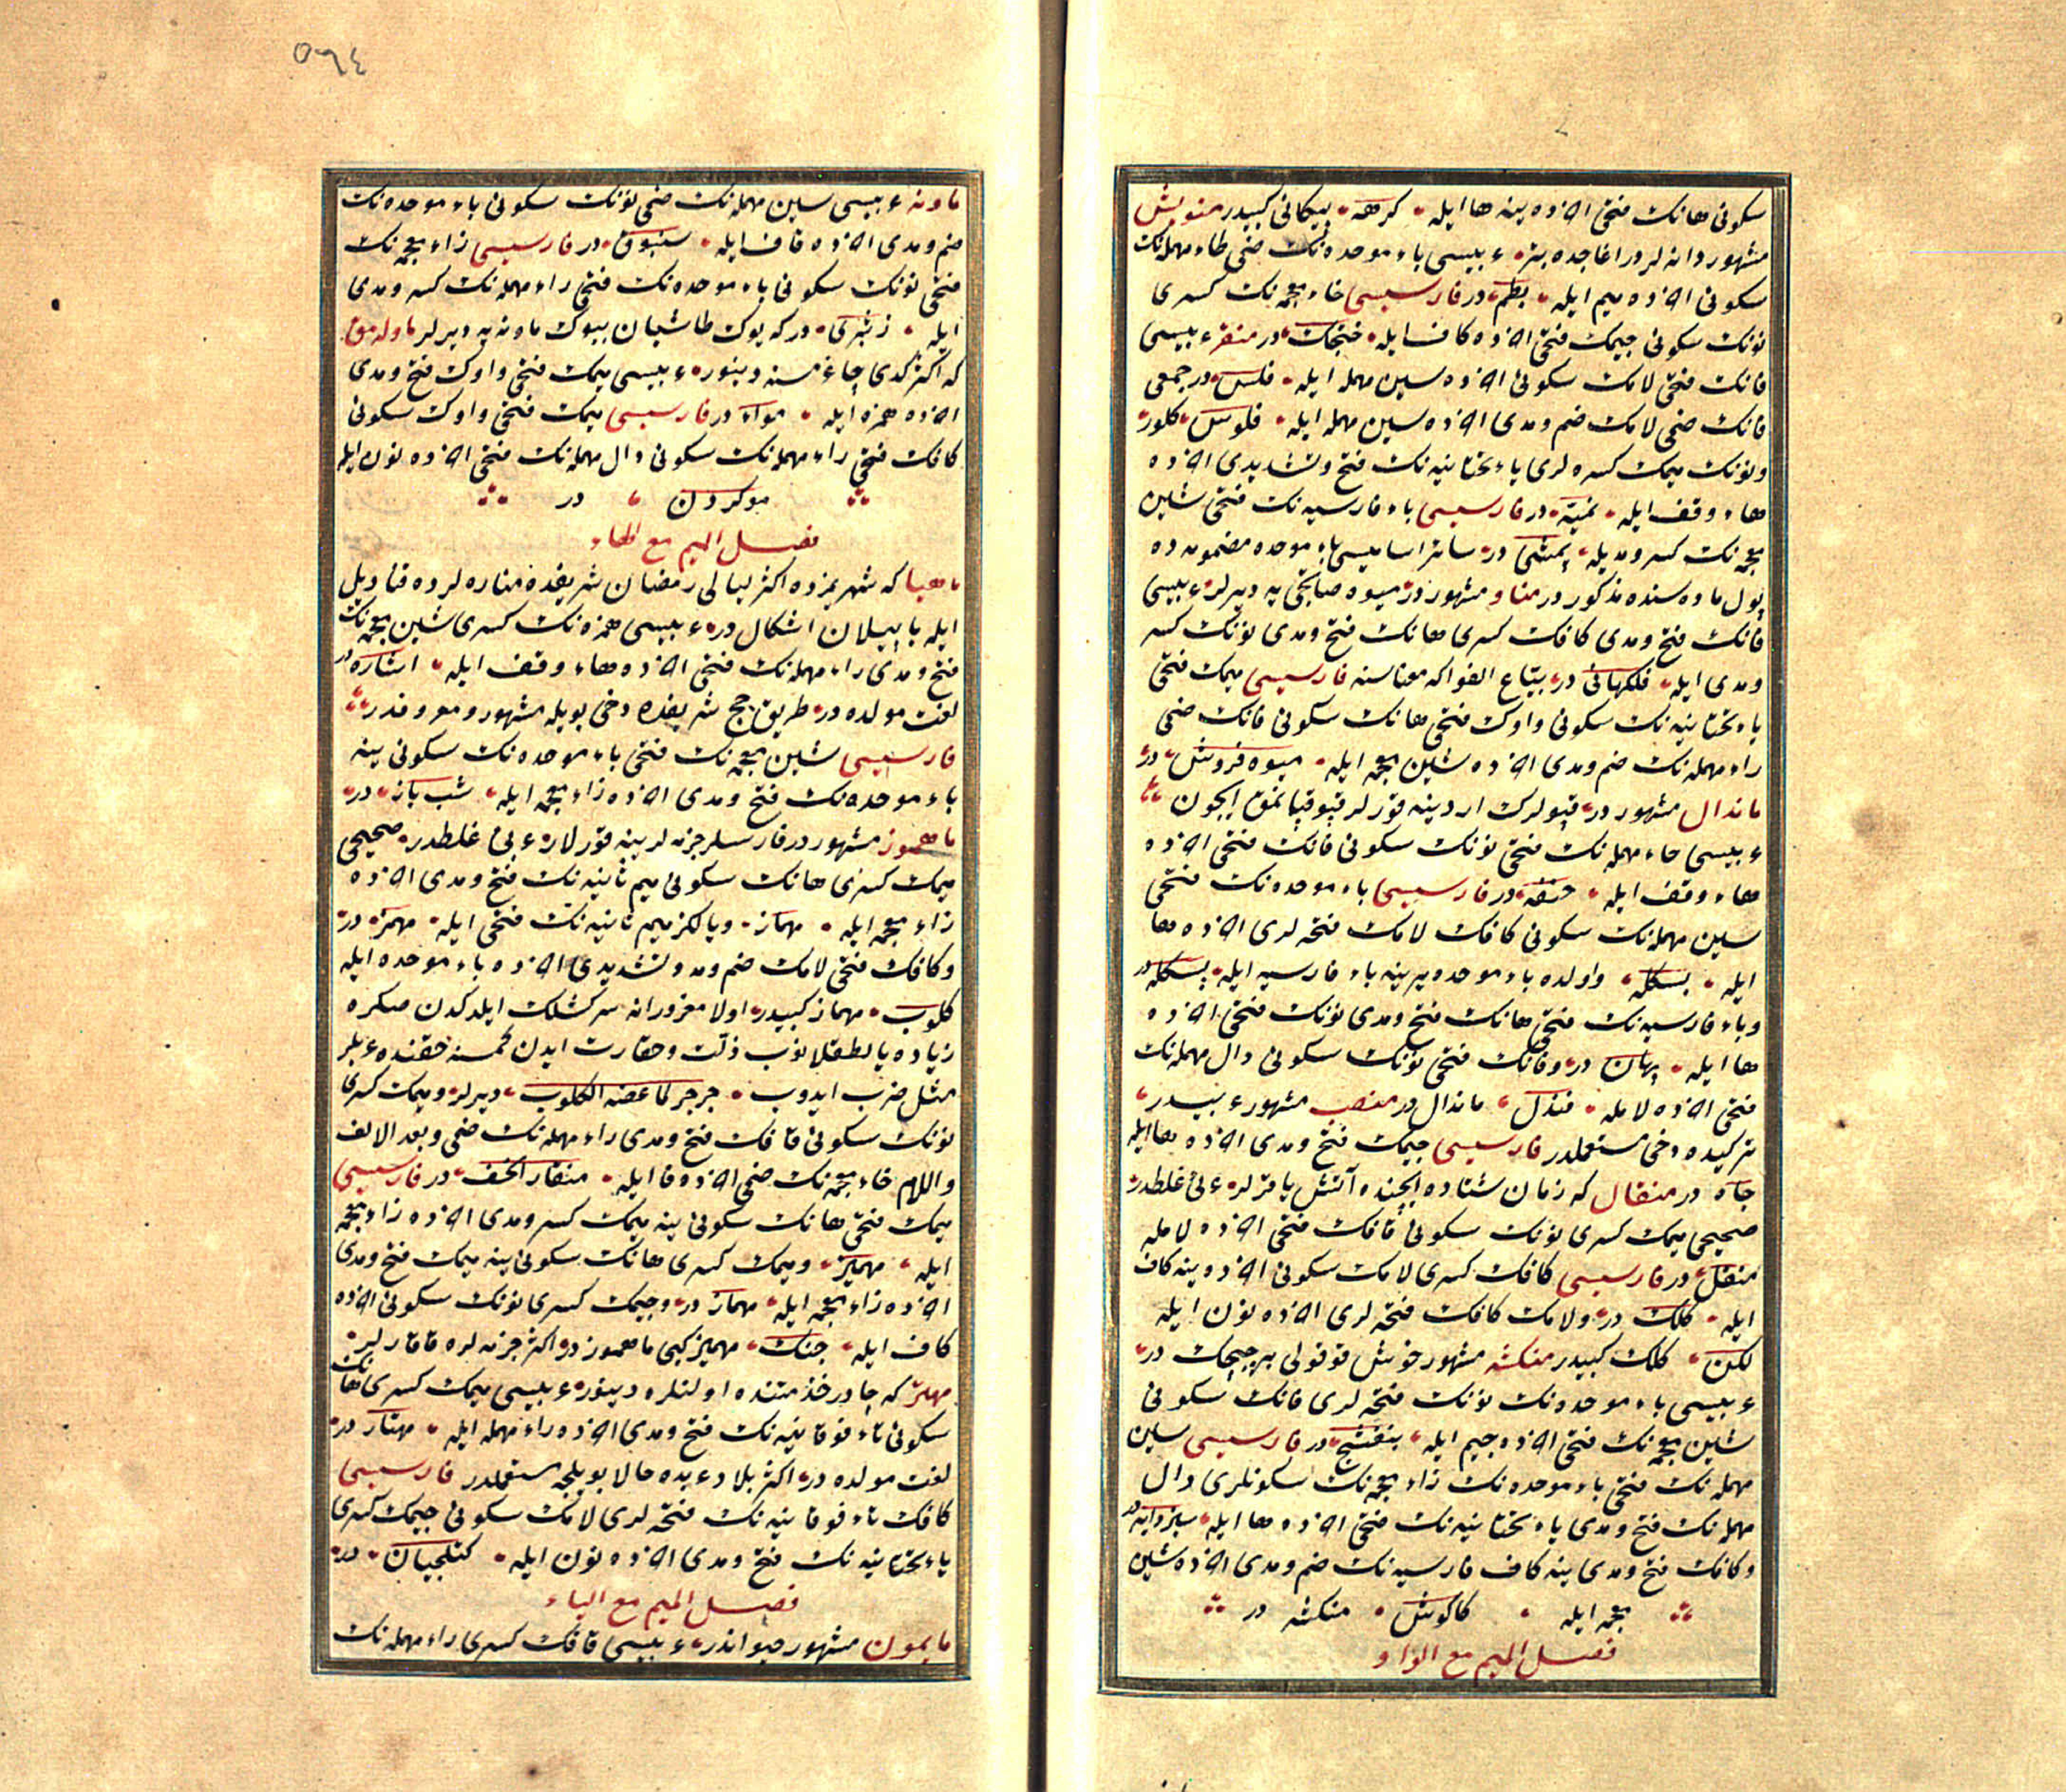 سكونى هانك فتحى اخرده ينه ها ايله كرهه پيكانى كبيدر منويش
مشهور دانه لردر اغاجده بتر عربيسى باء موحده نك ضمى طاء مهمله نك
سكونى اخرده ميم ايله بطم در فارسيسى خاء معجمه نك كسرى
نونك سكونى جيمك فتحى اخرده كاف ايله خنجك در منقر عربيسى
فانك فتحى لامك سكونى اخرده سين مهمله ايله فلس در جمعى
فانك ضمى لامك ضم ومدى اخرده سين مهمله ايله فلوس كلور
ونونك ميمك كسره لرى ياء تحتانيه نك فتح وتشديدى اخرده
هاء وقف ايله نميّه در فارسيسى باء فارسيه نك فتحى شين
معجمه نك كسر ومديله پشى در سائر اساميسى باء موحده مضمومه ده
پول ماده سنده مذكور در مناو مشهور در ميوه صاتيجى يه ديرلر عربيسى
فانك فتح ومدى كافك كسرى هانك فتح ومدى نونك كسر
ومدى ايله فاكهانى در بيّاع الفواكه معناسنه فارسيسى ميمك فتحى
ياء تحتانيه نك سكونى واوك فتحى هانك سكونى فانك ضمى
راء مهمله نك ضم ومدى اخرده شين معجمه ايله ميوه فروش در
ماندال مشهور در قپولرك اردينه قورلر قپو قپانمق ايچون
عربيسى حاء مهمله نك فتحى نونك سكونى فانك فتحى اخرده
هاء وقف ايله حنفه در فارسيسى باء موحده نك فتحى
سين مهمله نك سكونى كافك لامك فتحه لرى اخرده ها
ايله بسكله واولده باء موحده يرينه باء فارسيه ايله پسكله در
وباء فارسيه نك فتحى هانك فتح ومدى نونك فتحى اخرده
ها ايله پهانه در وفانك فتحى نونك سكونى دال مهمله نك
فتحى اخرده لامله فندل ماندال در منصب مشهور عربيدر
تركيده دخى مستعملدر فارسيسى جيمك فتح ومدى اخرده ها ايله
جاه در منقال كه زمان شتاده ايچنده آتش ياقرلر عربى غلطدر
صحيحى ميمك كسرى نونك سكونى قافك فتحى اخرده لامله
منقل در فارسيسى كافك كسرى لامك سكونى اخرده ينه كاف
ايله كلك در ولامك كافك فتحه لرى اخرده نون ايله
لكن كلك كبيدر منكشه مشهور خوش قوقولى بر چيچك در
عربيسى باء موحده نك نونك فتحه لرى فانك سكونى
شين معجمه نك فتحى اخرده جيم ايله بنفشج در فارسيسى سين
مهمله نك فتحى باء موحده نك زاء معجمه نك سكونلرى دال
مهمله نك فتح ومدى ياء تحتانيه نك فتحى اخرده ها ايله سبزدايه در
وكافك فتح ومدى ينه كاف فارسيه نك ضم ومدى اخرده شين
معجمه ايله كاكوش منكشه در
فصل الميم مع الواو
ماونه عربيسى سين مهمله نك ضمى نونك سكونى باء موحده نك
ضم ومدى اخرده قاف ايله سنبوق در فارسيسى زاء معجمه نك
فتحى نونك سكونى باء موحده نك فتحى راء مهمله نك كسر ومدى
ايله زنبرى در كه يوك طاشيان بيوك ماونه يه ديرلر ماولامق
كه اكثر كدى چاغرمسنه دينور عربيسى ميمك فتحى واوك فتح ومدى
اخرده همزه ايله مواء در فارسيسى ميمك فتحى واوك سكونى
كافك فتحى راء مهمله نك سكونى دال مهمله نك فتحى اخرده نون ايله
موكردن در
فصل الميم مع الهاء
ماهيا كه شهريمزده اكثر ليالى رمضان شريفده مناره لرده قناديل
ايله ياپيلان اشكال در عربيسى همزه نك كسرى شين معجمه نك
فتح ومدى راء مهمله نك فتحى اخرده هاء وقف ايله اشاره در
لغت مولده در طريق حج شريفده دخى بويله مشهور ومعروفدر
فارسيسى شين معجمه نك فتحى باء موحده نك سكونى ينه
باء موحده نك فتح ومدى اخرده زاء معجمه ايله شب باز در
ماهموز مشهور در فارسلر چزمه لرينه قورلار عربى غلطدر صحيحى
ميمك كسرى هانك سكونى ميم ثانيه نك فتح ومدى اخرده
زاء معجمه ايله مهماز ويالكز ميم ثانيه نك فتحى ايله مهمز در
وكافك فتحى لامك ضم ومد وتشديدى اخرده باء موحده ايله
كلوب مهماز كبيدر اولا مغرورانه سركشلك ايلدكدن صكره
زياده يالطقلانوب ذلت وحقارت ايدن كمسنه حقنده عربلر
مثل ضرب ايدوب جرجر لما عضه الكلوب ديرلر وميمك كسرى
نونك سكونى قافك فتح ومدى راء مهمله نك ضمى وبعد الالف
واللام خاء معجمه نك ضمى اخرده فا ايله منقار الخف در فارسيسى
ميمك فتحى هانك سكونى ينه ميمك كسر ومدى اخرده زاء معجمه
ايله مهميز وميمك كسرى هانك سكونى ينه ميمك فتح ومدى
اخرده زاء معجمه ايله مهماز در وجيمك كسرى نونك سكونى اخرده
كاف ايله جنك مهميز كبى ماهموز در اكثر چزمه لره قاقارلر
مهتر كه چادر خدمتنده اولنلره دينور عربيسى ميمك كسرى هانك
سكونى تاء فوقانيه نك فتح ومدى اخرده راء مهمله ايله مهتار در
لغت مولده در اكثر بلاد عربده حالا بويلجه مستعملدر فارسيسى
كافك تاء فوقانيه نك فتحه لرى لامك سكونى جيمك كسرى
ياء تحتانيه نك فتح ومدى اخرده نون ايله كتلجيان در
فصل الميم مع الياء
مايمون مشهور حيواندر عربيسى قافك كسرى راء مهمله نك
٥٦٤